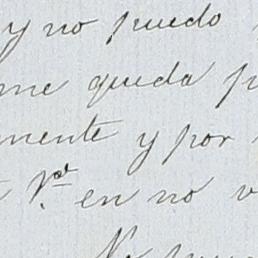 y no puedo
me queda p
mente y por
V.ᵈ en no v